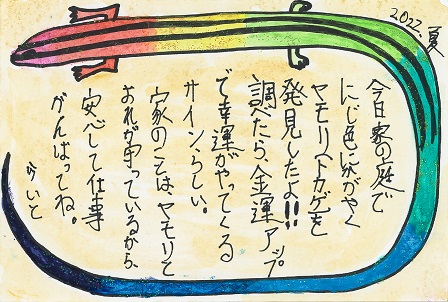 2022.夏
今日家の庭で
にじ色にかがやく
ヤモリ、トカゲを
発見したよ!!
調べたら、金運アップ
で幸運がやってくる
サイン、らしい。
家のことは、ヤモリと
おれが守っているから、
安心して仕事
がんばってね。
かいと